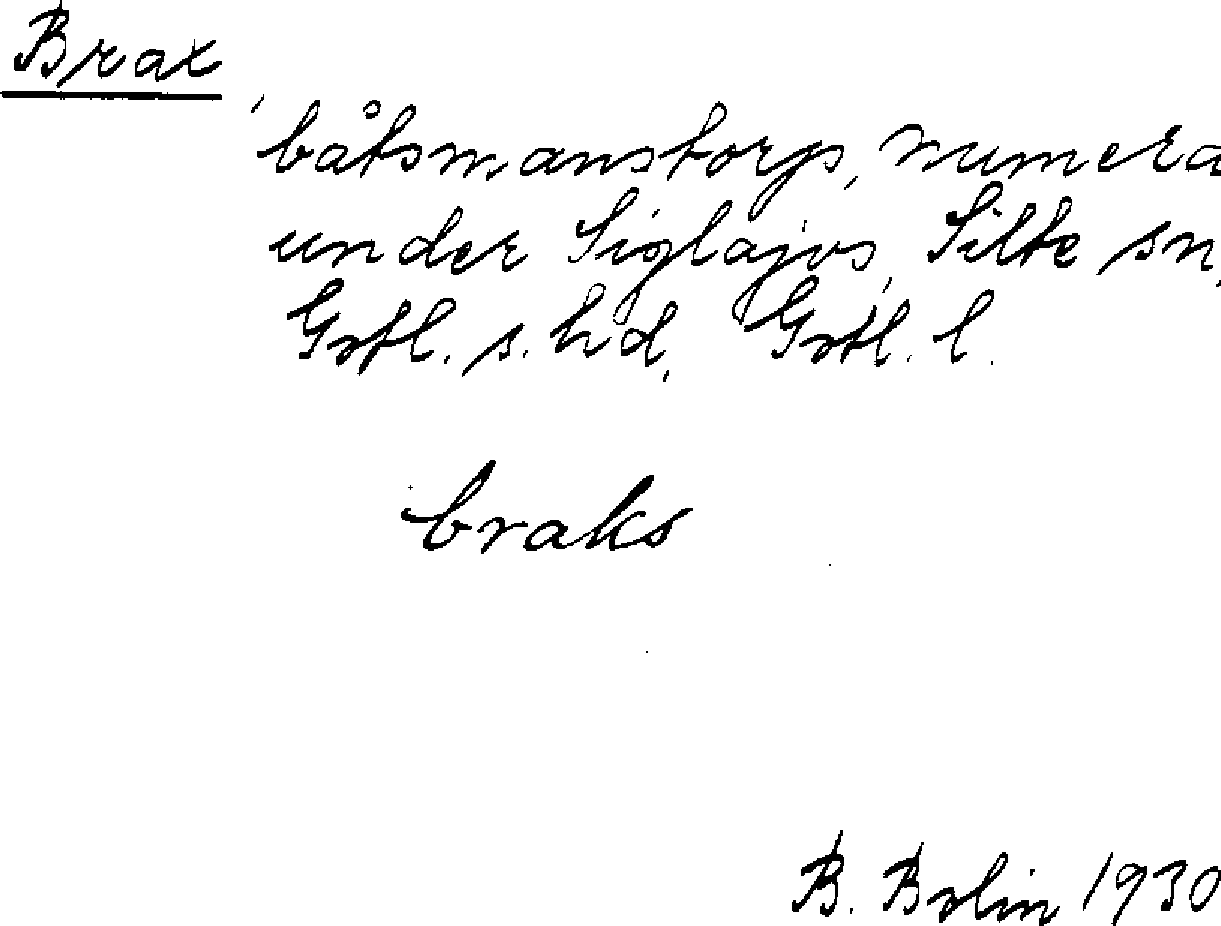 Brax,
båtsmanstorp, numera
under Siglajvs, Silte sn,
Gotl. s. hd, Gotl. l.
braks
B. Bolin 1930